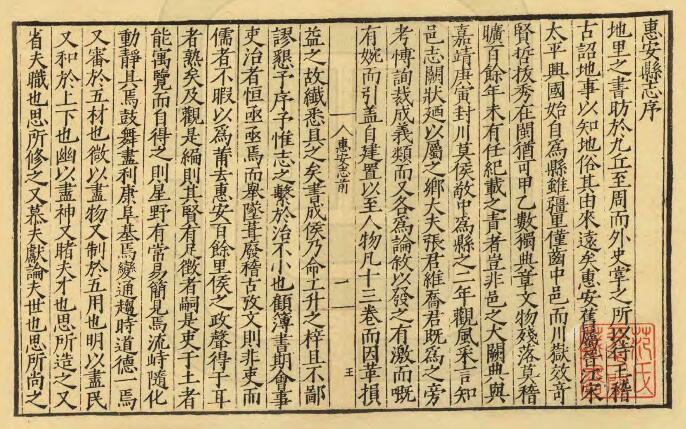 惠安縣志序
地里之書昉於九丘至周而外史宰之所以行王稽
古詔地事以知地俗其由來遠矣惠安舊屬晉江宋
太平興國始自為縣雖疆里僅齒中邑而川嶽效奇
賢哲拔秀在閩猶可甲乙數獨典章文物殘落莫稽
曠百餘年未有任紀載之責者豈非邑之大闕典與
嘉靖庚寅封川莫侯敬中為縣之二年觀風采言知
邑志闕狀廼以屬之鄉大夫張君維喬君既為之旁
考博詢裁成義類而又各為論敘以發之有激而嘅
有婉而引盖自建置以至人物凡十三卷而因革損
惠安志前
一
王
益之故纖悉具之矣書成侯乃命工升之梓且不鄙
謬懇予序予惟志之繫於治不小也顧簿書期會事
吏治者恒亟亟焉而舉墜葺廢稽古攷文則非吏而
儒者不暇以為莆去惠安百餘里侯之政聲得于耳
者熟矣及觀是編則其賢有足徵者嗣是吏于土者
能寓覽而自得之則星野有常易簡見焉流峙隨化
動靜具焉鼓舞盡利康阜基焉變通趨時道德一焉
又審於五材也微以盡物又制於五用也明以盡民
又和於上下也幽以盡神又睹夫才也思所造之又
省夫職也思所修之又慕夫獻論夫世也思所尚之